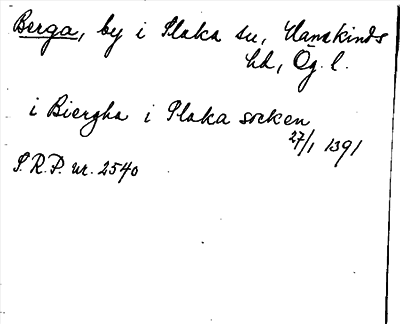 Berga, by i Slaka sn, Hanekinds
hd, Ög. l.
i Biergha i Slaka socken
27/1 1391
S.R.P. nr. 2540